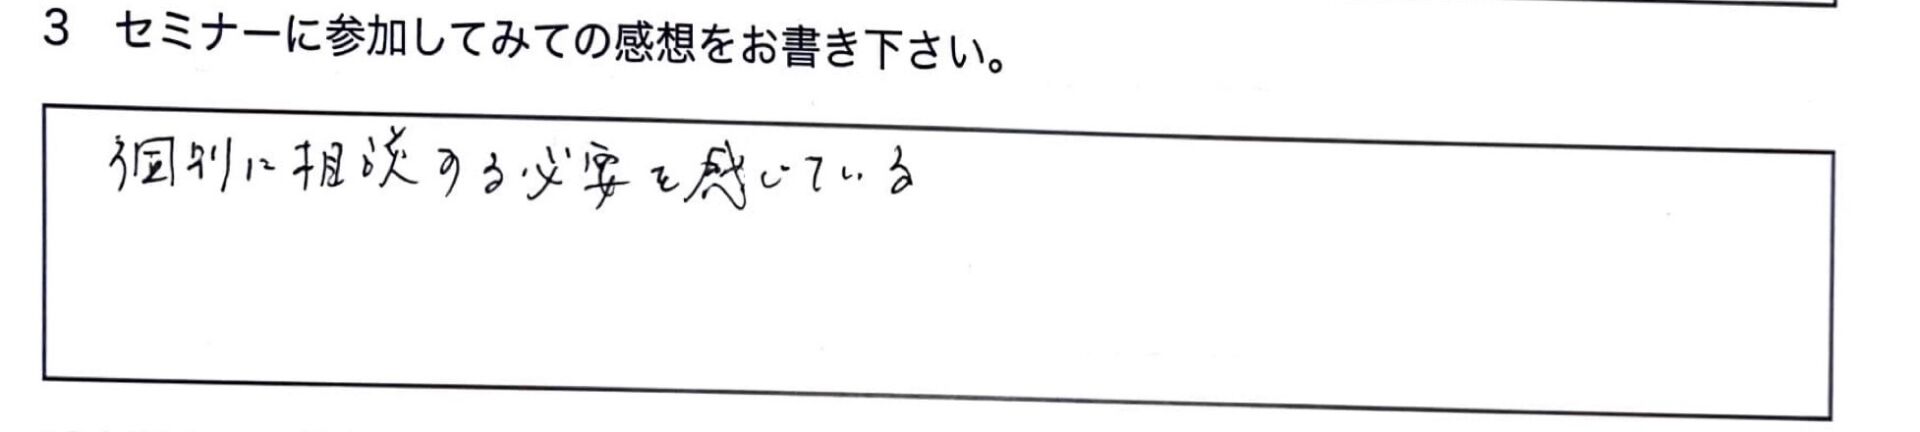 3 セミナーに参加してみての感想をお書き下さい。
個別に相談する必要を感じている